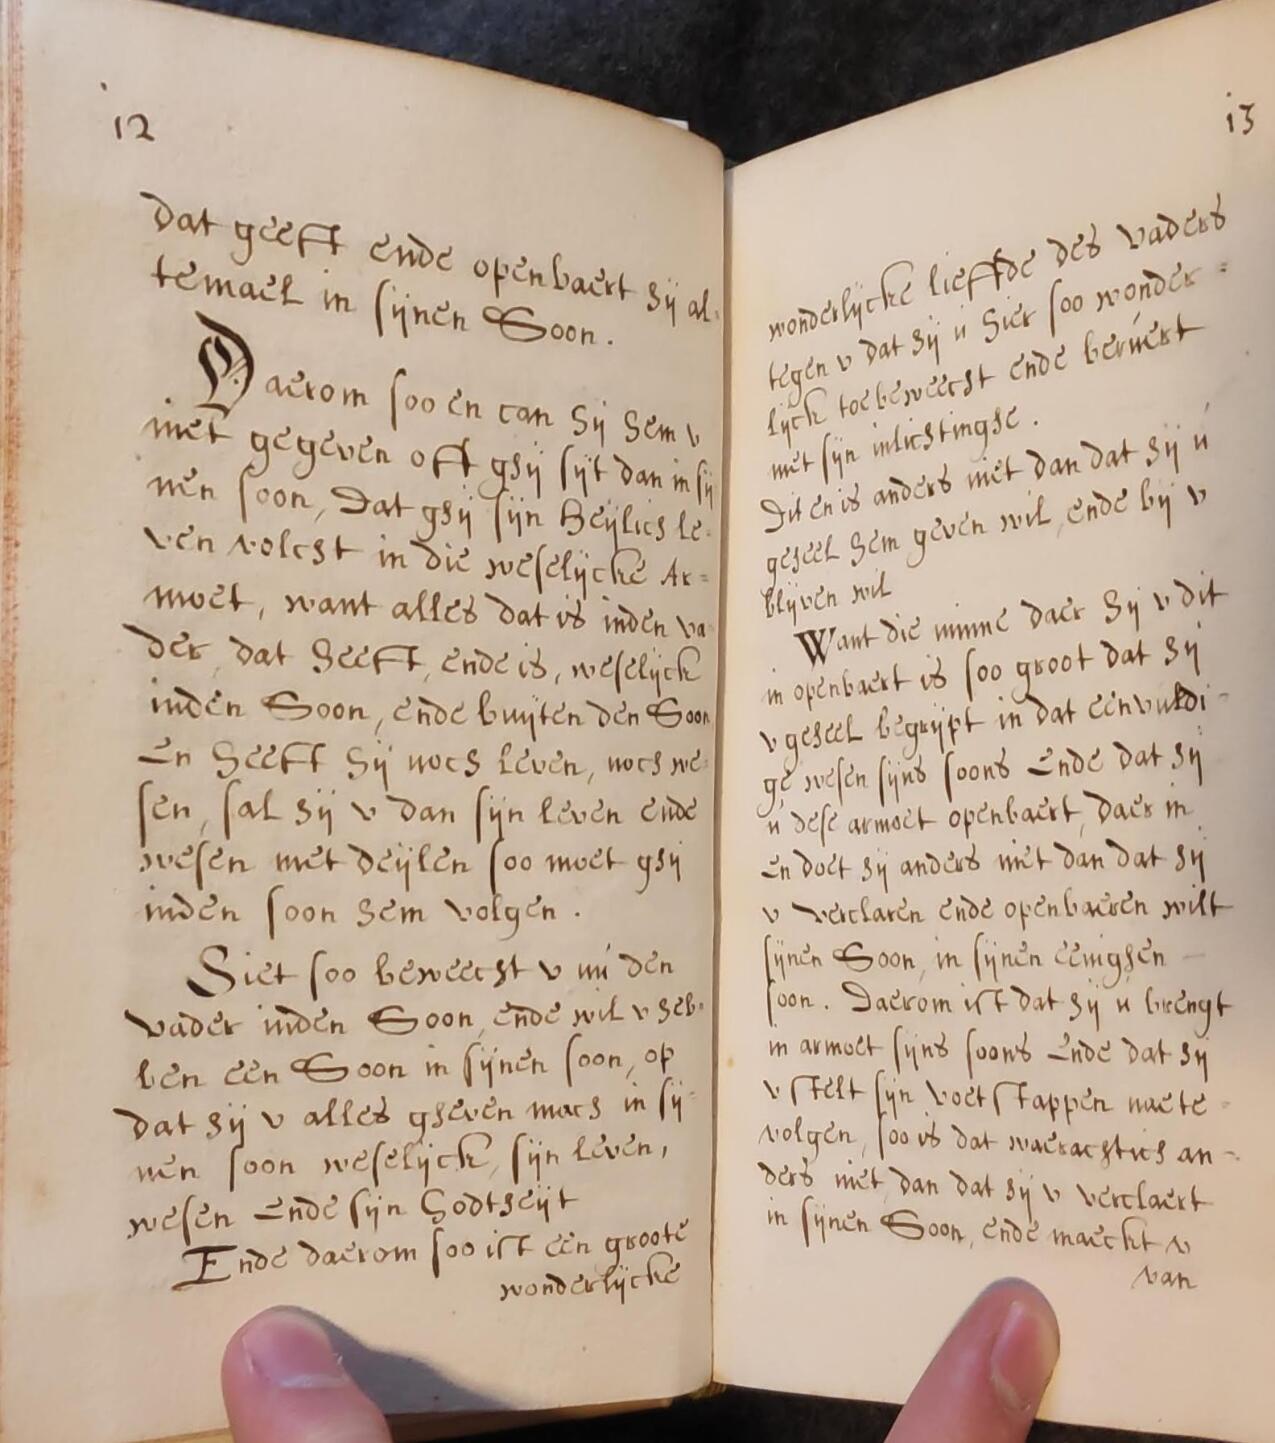 12
dat geefft ende openbaert hij al-
temael in sijnen Soon.
Daerom soo en can hij hem v
niet gegeven oft ghij sijt dan in sij
nen soon, Dat ghij sijn heijlich le-
ven volcht in die weselijcke Ar=
moet, want alles dat is inden va
der, dat heefft, ende is, weselijck
inden Soon, ende buijten den Soon
En heefft hij noch leven, noch we-
sen, sal hij v dan sijn leven ende
wesen met deijlen soo moet ghij
inden soon hem volgen.
Siet soo beweecht v nú den
vader inden Soon, ende wil v heb-
ben een Soon in sijnen soon, op
dat hij v alles gheven mach in sij-
nen soon weselijck, sijn leven,
wesen Ende sijn Godtheijt
Ende daerom soo ist een groote
wonderlijcke
13
wonderlijcke lieffde des vaders
tegen v dat hij ú hier soo wonder=
lijck toe beweecht ende berúert
met sijn inlichtinghe.
Dit en is anders niet dan dat hij ú
geheel hem geven wil, ende bij v
blijven wil
Want die minne daer hij v dit
in openbaert is soo groot dat hij
v geheel begrijpt in dat eenvuldi-
ge wesen sijns soons Ende dat hij
ú dese armoet openbaert, daer in
En doet hij anders niet dan dat hij
v verclaren ende openbaeren wilt
sijnen Soon, in sijnen eenighen
soon. Daerom ist dat hij ú brengt
in armoet sijns soons Ende dat hij
v stelt sijn voetstappen nae te-
volgen, soo is dat waerachtich an-
ders niet dan dat hij v verclaert
in sijnen Soon, ende maeckt v
van